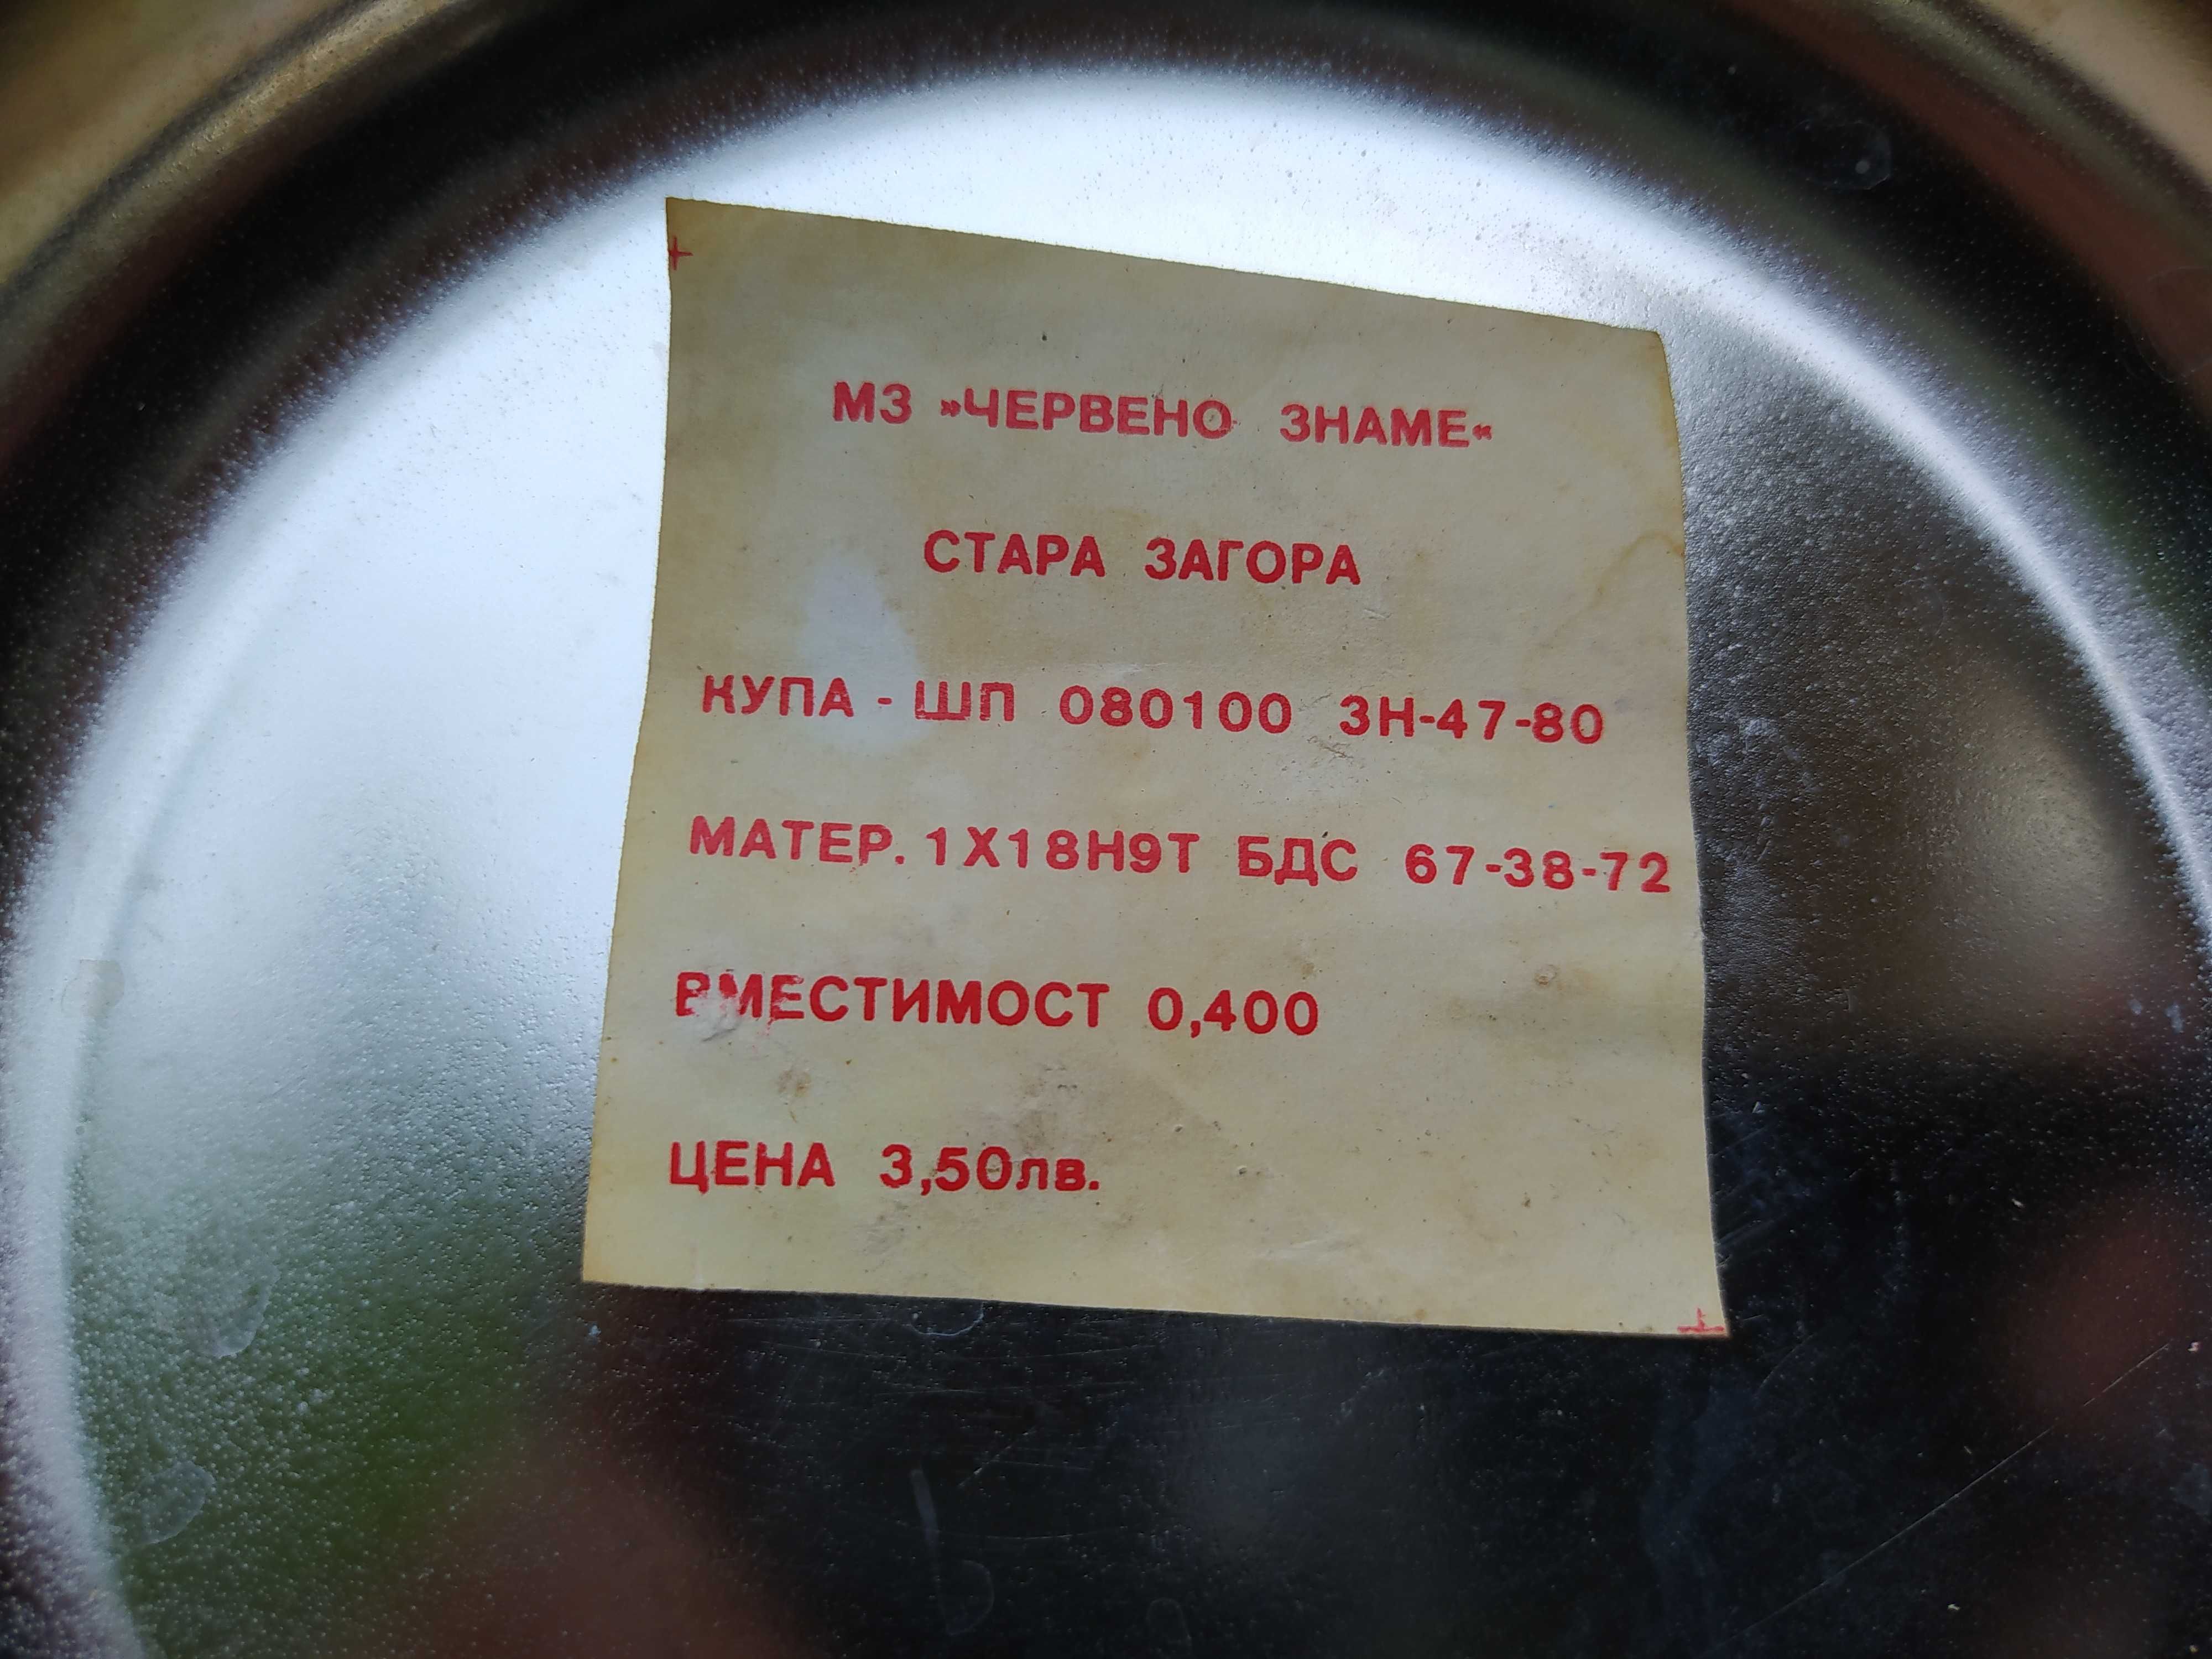 МЗ »ЧЕРВЕНО ЗНАМЕ«
СТАРА ЗАГОРА
КУПА - ШП 080100 ЗН-47-80
МАТЕР. 1Х18Н9Т БДС 67-38-72
ВМЕСТИМОСТ 0,400
ЦЕНА 3,50лв.